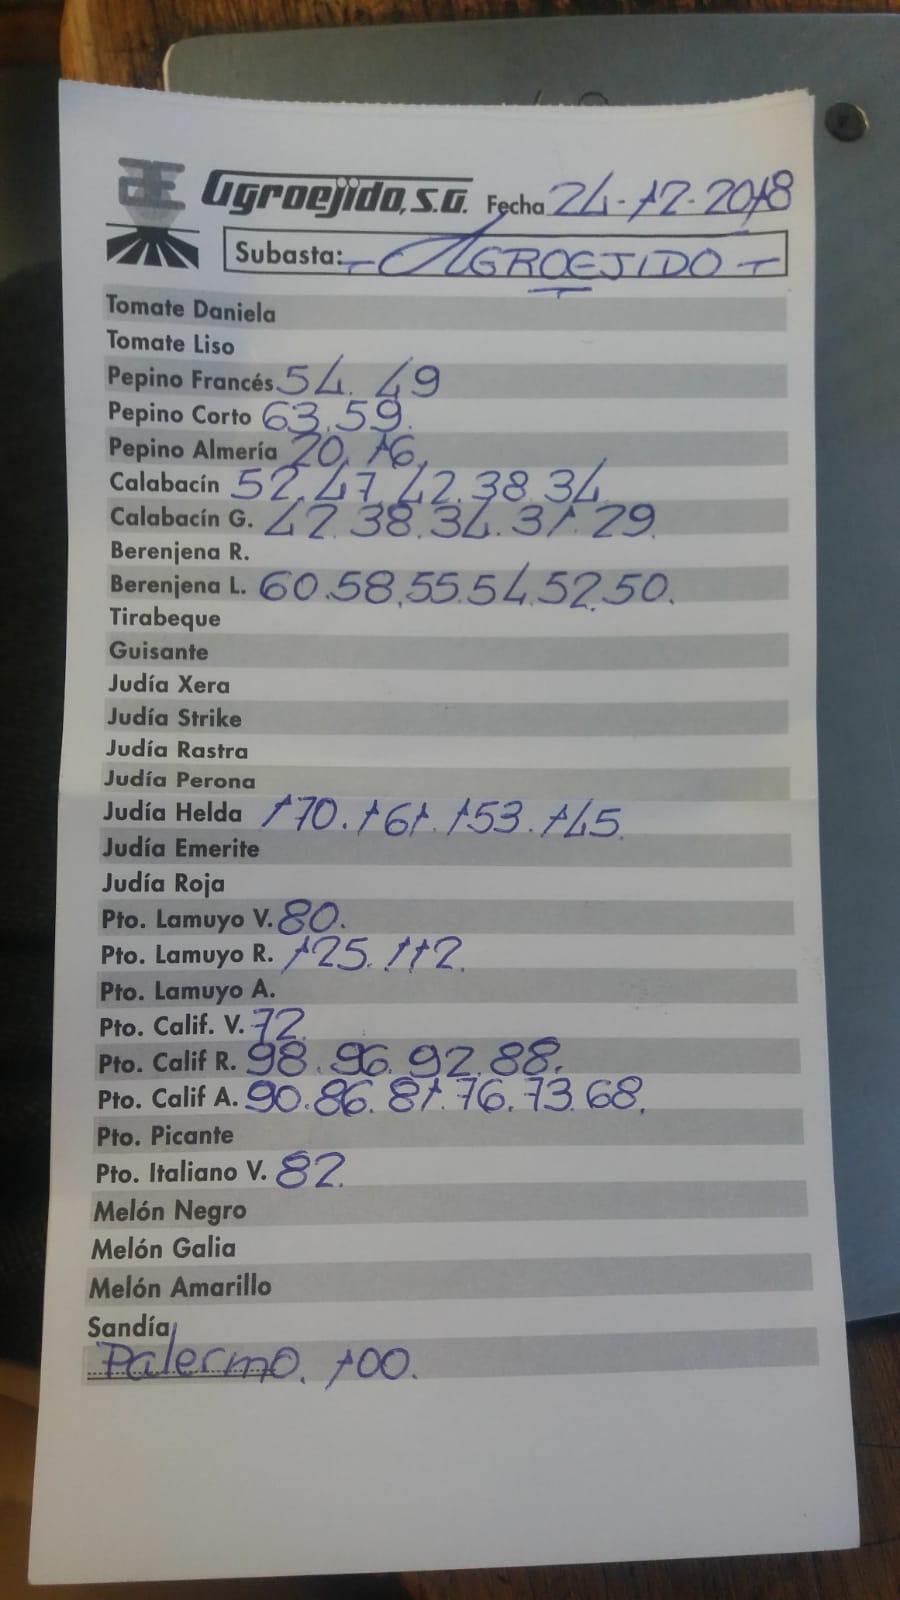 Agroejido, S.A. Fecha 24-12-2018
Subasta: - AGROEJIDO -
Tomate Daniela
Tomate Liso
Pepino Francés 54. 49
Pepino Corto 63.59.
Pepino Almería 20. 16.
Calabacín 52.47.42.38.34
Calabacín G. 42.38.34.31.29.
Berenjena R.
Berenjena L. 60.58.55.54.52.50.
Tirabeque
Guisante
Judía Xera
Judía Strike
Judía Rastra
Judía Perona
Judía Helda 170.161.153.145.
Judía Emerite
Judía Roja
Pto. Lamuyo V. 80.
Pto. Lamuyo R. 125. 112.
Pto. Lamuyo A.
Pto. Calif. V. 72.
Pto. Calif R. 98.96.92.88.
Pto. Calif A. 90.86.81.76.73.68.
Pto. Picante
Pto. Italiano V. 82.
Melón Negro
Melón Galia
Melón Amarillo
Sandía
Palermo. 100.